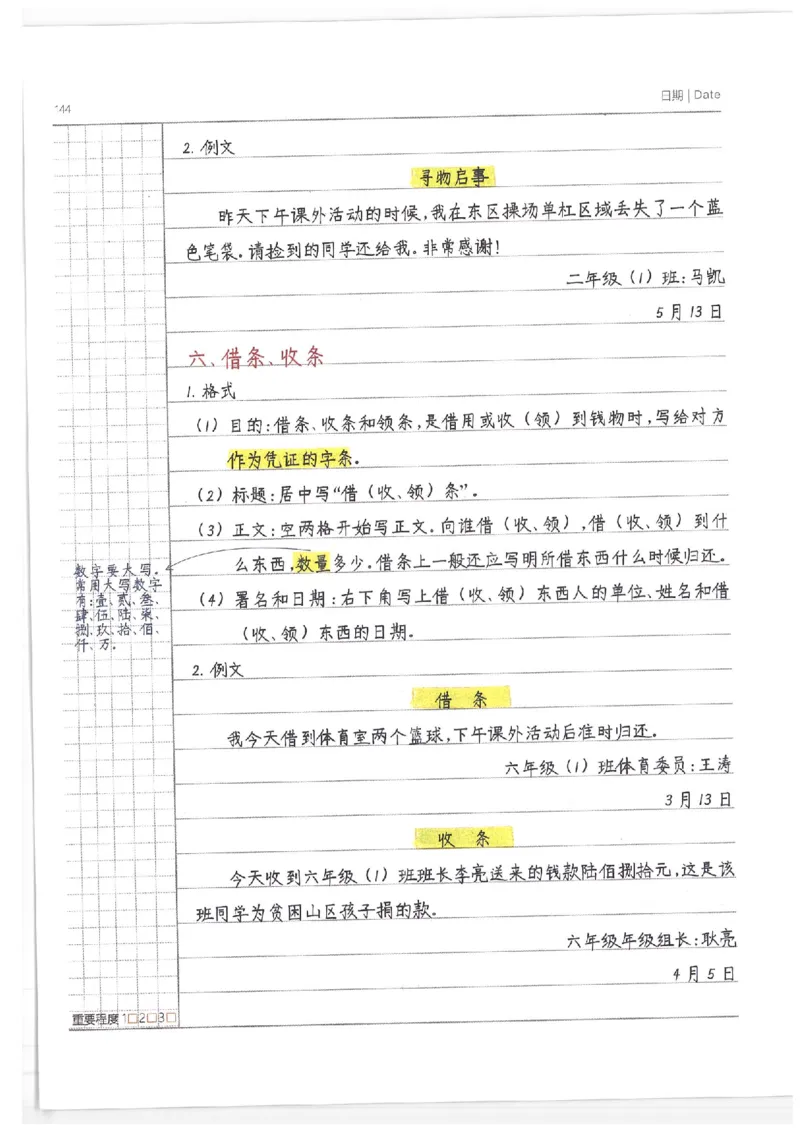 144
日期 | Date
2. 例文
寻物启事
昨天下午课外活动的时候,我在东区操场单杠区域丢失了一个蓝
色笔袋。请捡到的同学还给我。非常感谢!
二年级(1)班:马凯
5月13日
六、借条、收条
1. 格式
(1)目的:借条、收条和领条,是借用或收(领)到钱物时,写给对方
作为凭证的字条。
(2)标题:居中写“借(收、领)条”。
(3)正文:空两格开始写正文。向谁借(收、领),借(收、领)到什
么东西,数量多少。借条上一般还应写明所借东西什么时候归还。
(4)署名和日期:右下角写上借(收、领)东西人的单位、姓名和借
(收、领)东西的日期。
数字要大写。
常用大写数字
有:壹、贰、叁、
肆、伍、陆、柒、
捌、玖、拾、佰、
仟、万。
2. 例文
借 条
我今天借到体育室两个篮球,下午课外活动后准时归还。
六年级(1)班体育委员:王涛
3月13日
收 条
今天收到六年级(1)班班长李亮送来的钱款陆佰捌拾元,这是该
班同学为贫困山区孩子捐的款。
六年级年级组长:耿亮
4月5日
重要程度 1□2□3□